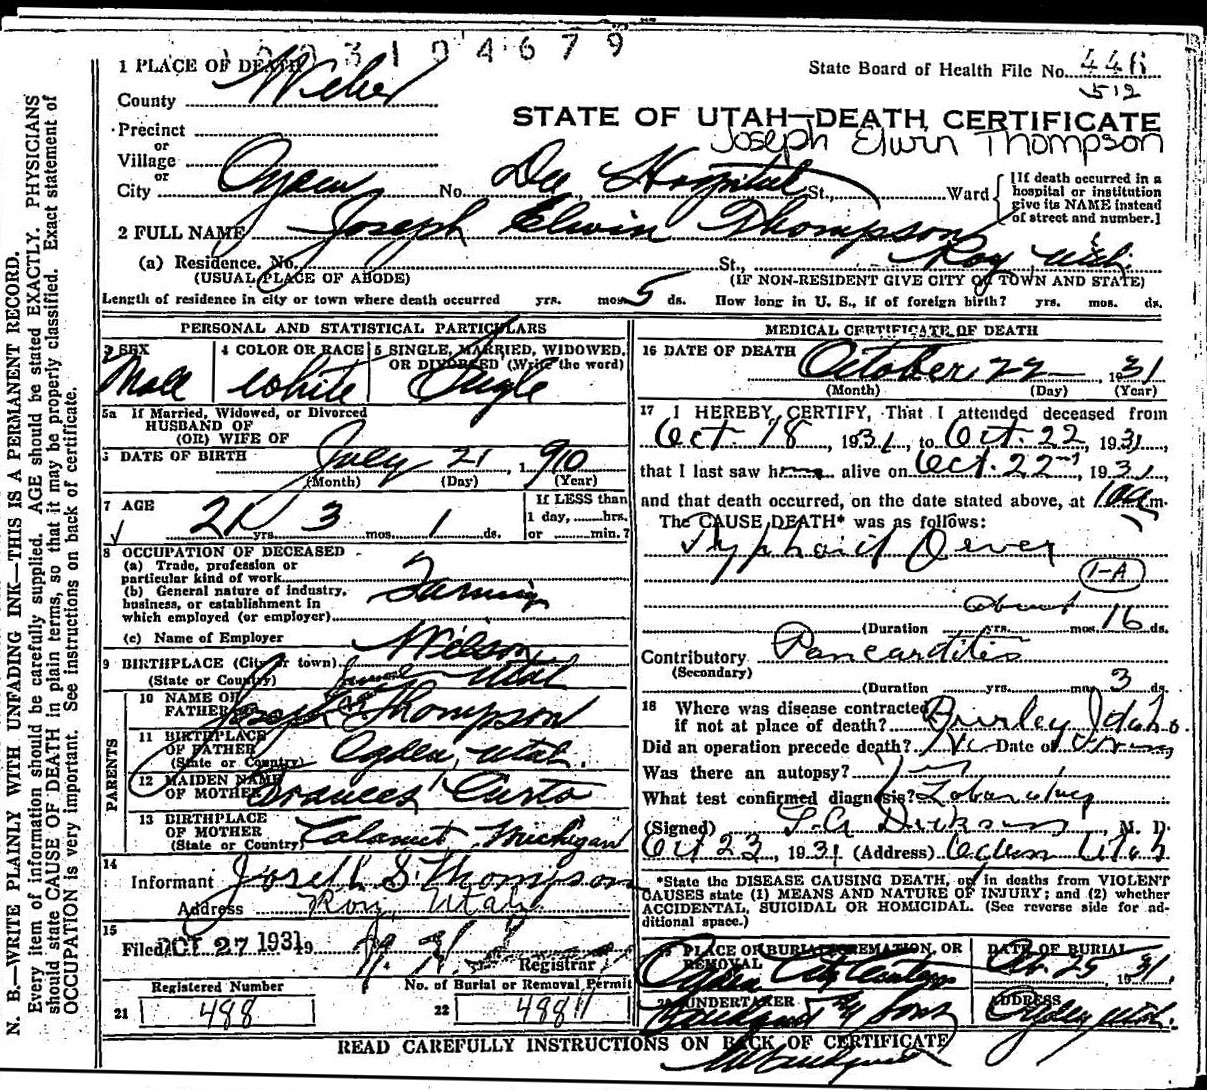 1003104679
1 PLACE OF DEATH
State Board of Health File No. 446
512
County Weber
STATE OF UTAH—DEATH CERTIFICATE
Joseph Elwin Thompson
Precinct
or
Village
or
City Ogden No. Dee Hospital St., Ward
[If death occurred in a hospital or institution give its NAME instead of street and number.]
2 FULL NAME Joseph Elwin Thompson
(a) Residence. No. St., Roy, Utah
(USUAL PLACE OF ABODE) (IF NON-RESIDENT GIVE CITY OR TOWN AND STATE)
Length of residence in city or town where death occurred yrs. mos. 5 ds. How long in U. S., if of foreign birth? yrs. mos. ds.
PERSONAL AND STATISTICAL PARTICULARS
3 SEX
Male
4 COLOR OR RACE
White
5 SINGLE, MARRIED, WIDOWED, OR DIVORCED (Write the word)
Single
5a If Married, Widowed, or Divorced
HUSBAND OF
(OR) WIFE OF
6 DATE OF BIRTH July 21, 1910
(Month) (Day) (Year)
7 AGE
21 yrs. 3 mos. 1 ds.
If LESS than
1 day, hrs.
or min.?
8 OCCUPATION OF DECEASED
(a) Trade, profession or
particular kind of work
(b) General nature of industry,
business, or establishment in
which employed (or employer)
Farming
(c) Name of Employer
9 BIRTHPLACE (City or town) Wilson
(State or Country) Utah
PARENTS
10 NAME OF
FATHER Joseph S Thompson
11 BIRTHPLACE
OF FATHER
(State or Country) Ogden, Utah.
12 MAIDEN NAME
OF MOTHER Frances Curto
13 BIRTHPLACE
OF MOTHER
(State or Country) Calamut, Michigan
14
Informant Joseph S. Thompson
Address Roy, Utah
15
Filed OCT 27 1931 19
Registrar
Registered Number
21 488
No. of Burial or Removal Permit
22 488
MEDICAL CERTIFICATE OF DEATH
16 DATE OF DEATH October 22 1931
(Month) (Day) (Year)
17 I HEREBY CERTIFY, That I attended deceased from
Oct. 18, 1931, to Oct. 22 1931,
that I last saw him alive on Oct. 22nd, 1931,
and that death occurred, on the date stated above, at m.
The CAUSE DEATH* was as follows:
Typhoid Fever
1-A
about
(Duration yrs. mos. 16 ds.
Contributory Pancarditis
(Secondary)
(Duration yrs. mos. 3 ds.
18 Where was disease contracted
if not at place of death? Burley Idaho.
Did an operation precede death? No Date of
Was there an autopsy?
What test confirmed diagnosis? Laboratory
(Signed) M. D.
Oct 23, 1931 (Address) Ogden Utah
*State the DISEASE CAUSING DEATH, or in deaths from VIOLENT
CAUSES state (1) MEANS AND NATURE OF INJURY; and (2) whether
ACCIDENTAL, SUICIDAL OR HOMICIDAL. (See reverse side for ad-
ditional space.)
19 PLACE OR BURIAL CREMATION, OR
REMOVAL
Ogden City Cemetery
DATE OF BURIAL
Oct. 25 1931.
20 UNDERTAKER
& Sons
ADDRESS
Ogden, Utah.
READ CAREFULLY INSTRUCTIONS ON BACK OF CERTIFICATE
N. B.—WRITE PLAINLY WITH UNFADING INK—THIS IS A PERMANENT RECORD.
Every item of information should be carefully supplied. AGE should be stated EXACTLY. PHYSICIANS
should state CAUSE OF DEATH in plain terms, so that it may be properly classified. Exact statement of
OCCUPATION is very important. See instructions on back of certificate.